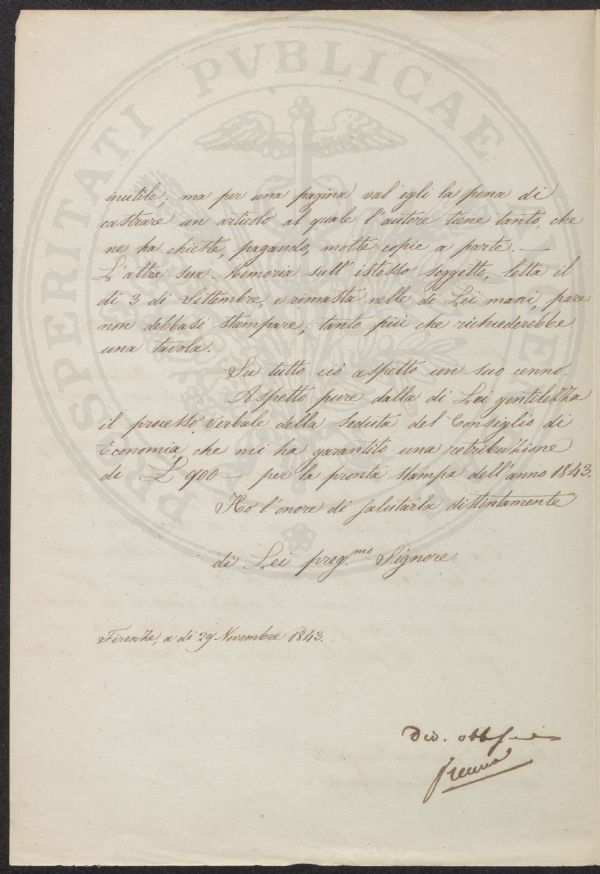 inutile; ma per una pagina val'egli la pena di
castrare un articolo al quale l'autore tiene tanto, che
ne ha chieste, pagando, molte copie a parte. —
L'altra sua Memoria sull'istesso soggetto, letta il
di 3 di Settembre, e rimasta nelle di Lei mani, pare
non debbasi stampare, tanto più che richiederebbe
una tavola.
Su tutto ciò aspetto un suo cenno.
Aspetto pure dalla di Lei gentilezza
il processo verbale della seduta del Consiglio di
Economia, che mi ha garantito una retribuzione
di £ 900 — per la pronta stampa dell'anno 1843.
Ho l'onore di salutarla distintamente
di Lei preg.mo Signore
Firenze, a di 29 Novembre 1843.
PROSPERITATI PVBLICAE